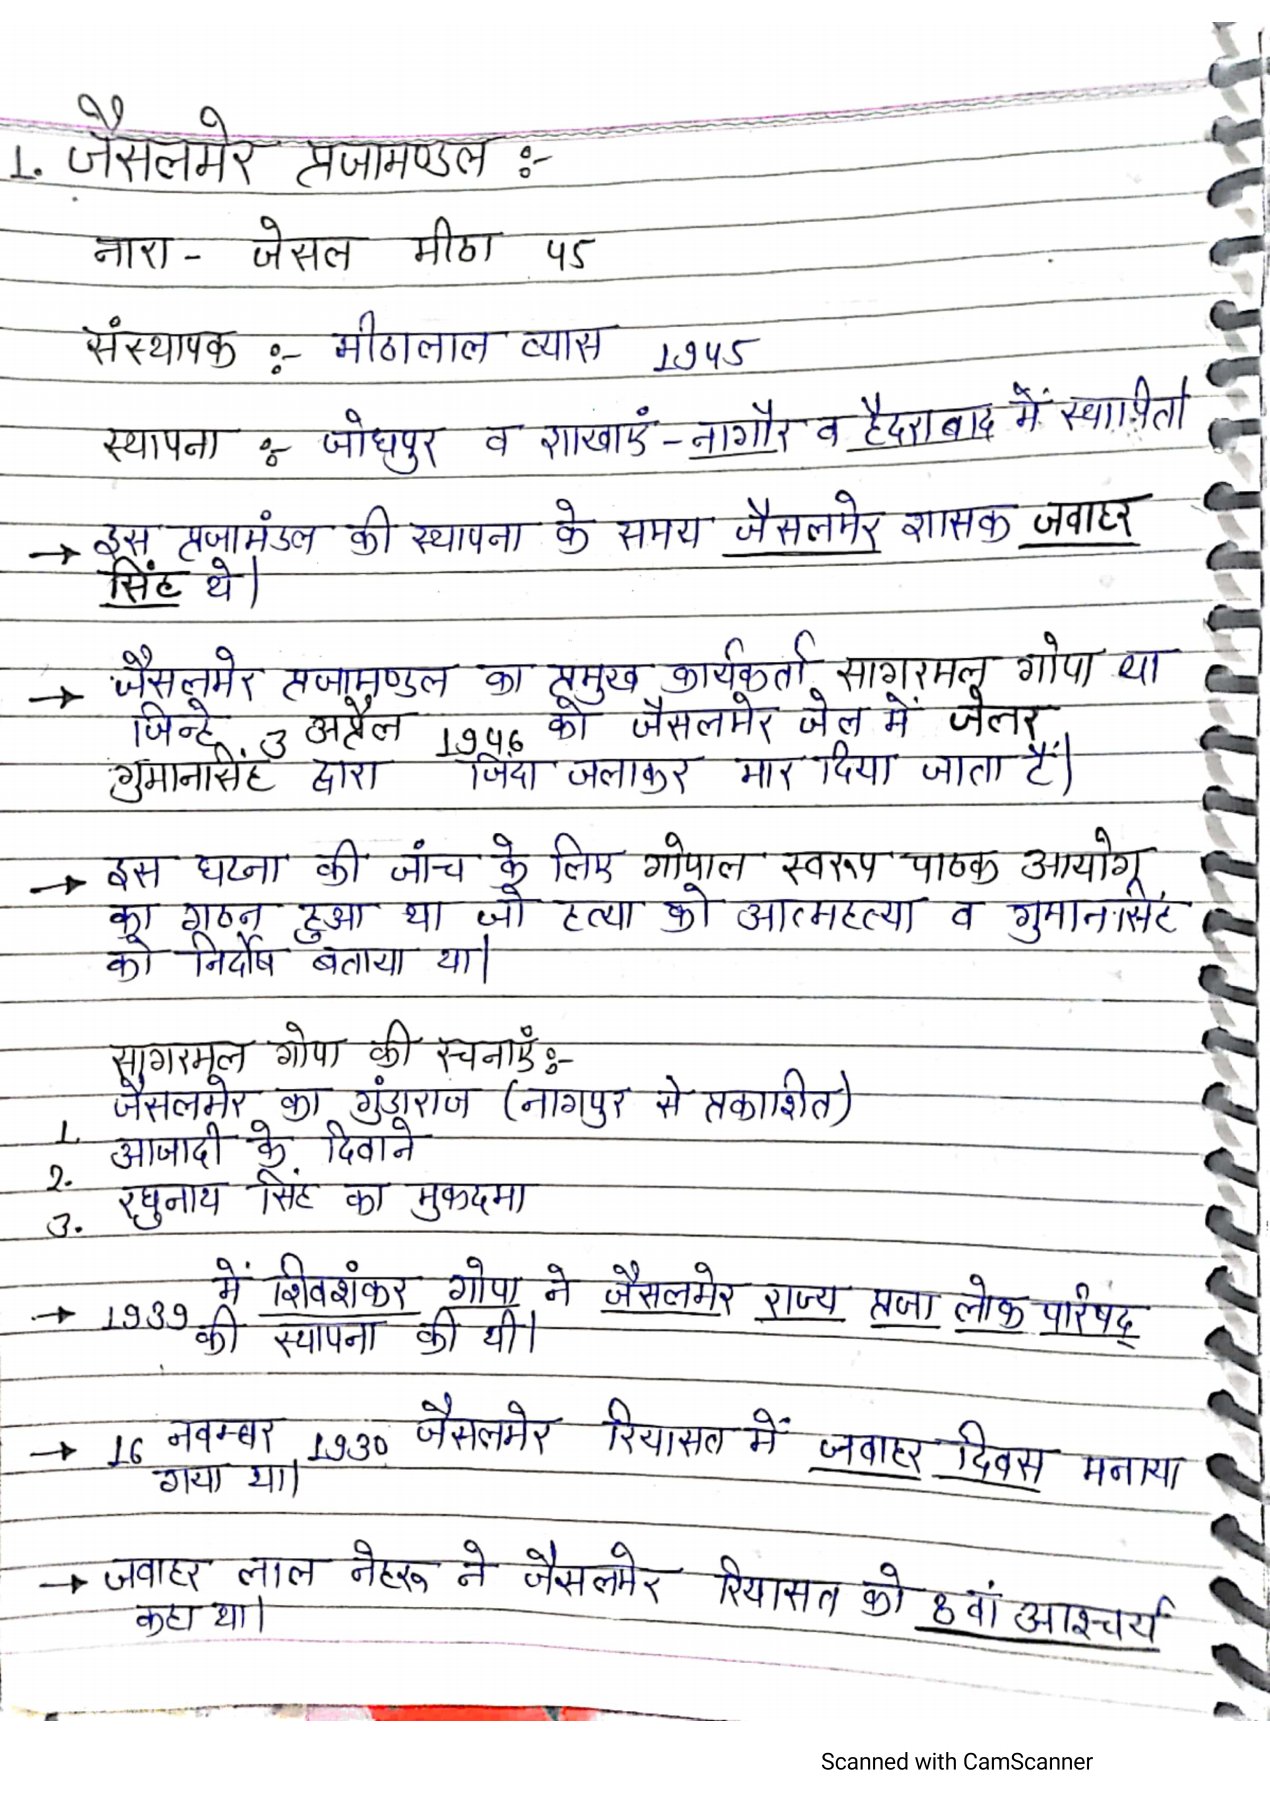 1. जैसलमेर प्रजामण्डल :-
नारा - जेसल मीठा 45
संस्थापक :- मीठालाल व्यास 1945
स्थापना :- जोधपुर व शाखाएं - नागौर व हैदराबाद में स्थापित।
→ इस प्रजामंडल की स्थापना के समय जैसलमेर शासक जवाहर
सिंह थे।
→ जैसलमेर प्रजामण्डल का प्रमुख कार्यकर्ता सागरमल गोपा था
जिन्हे 3 अप्रैल 1946 को जैसलमेर जेल में जेलर
गुमानसिंह द्वारा जिंदा जलाकर मार दिया जाता हैं।
→ इस घटना की जांच के लिए गोपाल स्वरूप पाठक आयोग
का गठन हुआ था जो हत्या को आत्महत्या व गुमानसिंह
को निर्दोष बताया था।
सागरमल गोपा की रचनाएँ :-
1. जैसलमेर का गुंडाराज (नागपुर से प्रकाशित)
2. आजादी के दिवाने
3. रघुनाथ सिंह का मुकदमा
→ 1939 में शिवशंकर गोपा ने जैसलमेर राज्य प्रजा लोक परिषद्
की स्थापना की थी।
→ 16 नवम्बर 1930 जैसलमेर रियासत में जवाहर दिवस मनाया
गया था।
→ जवाहर लाल नेहरू ने जैसलमेर रियासत को 8वां आश्चर्य
कहा था।
Scanned with CamScanner